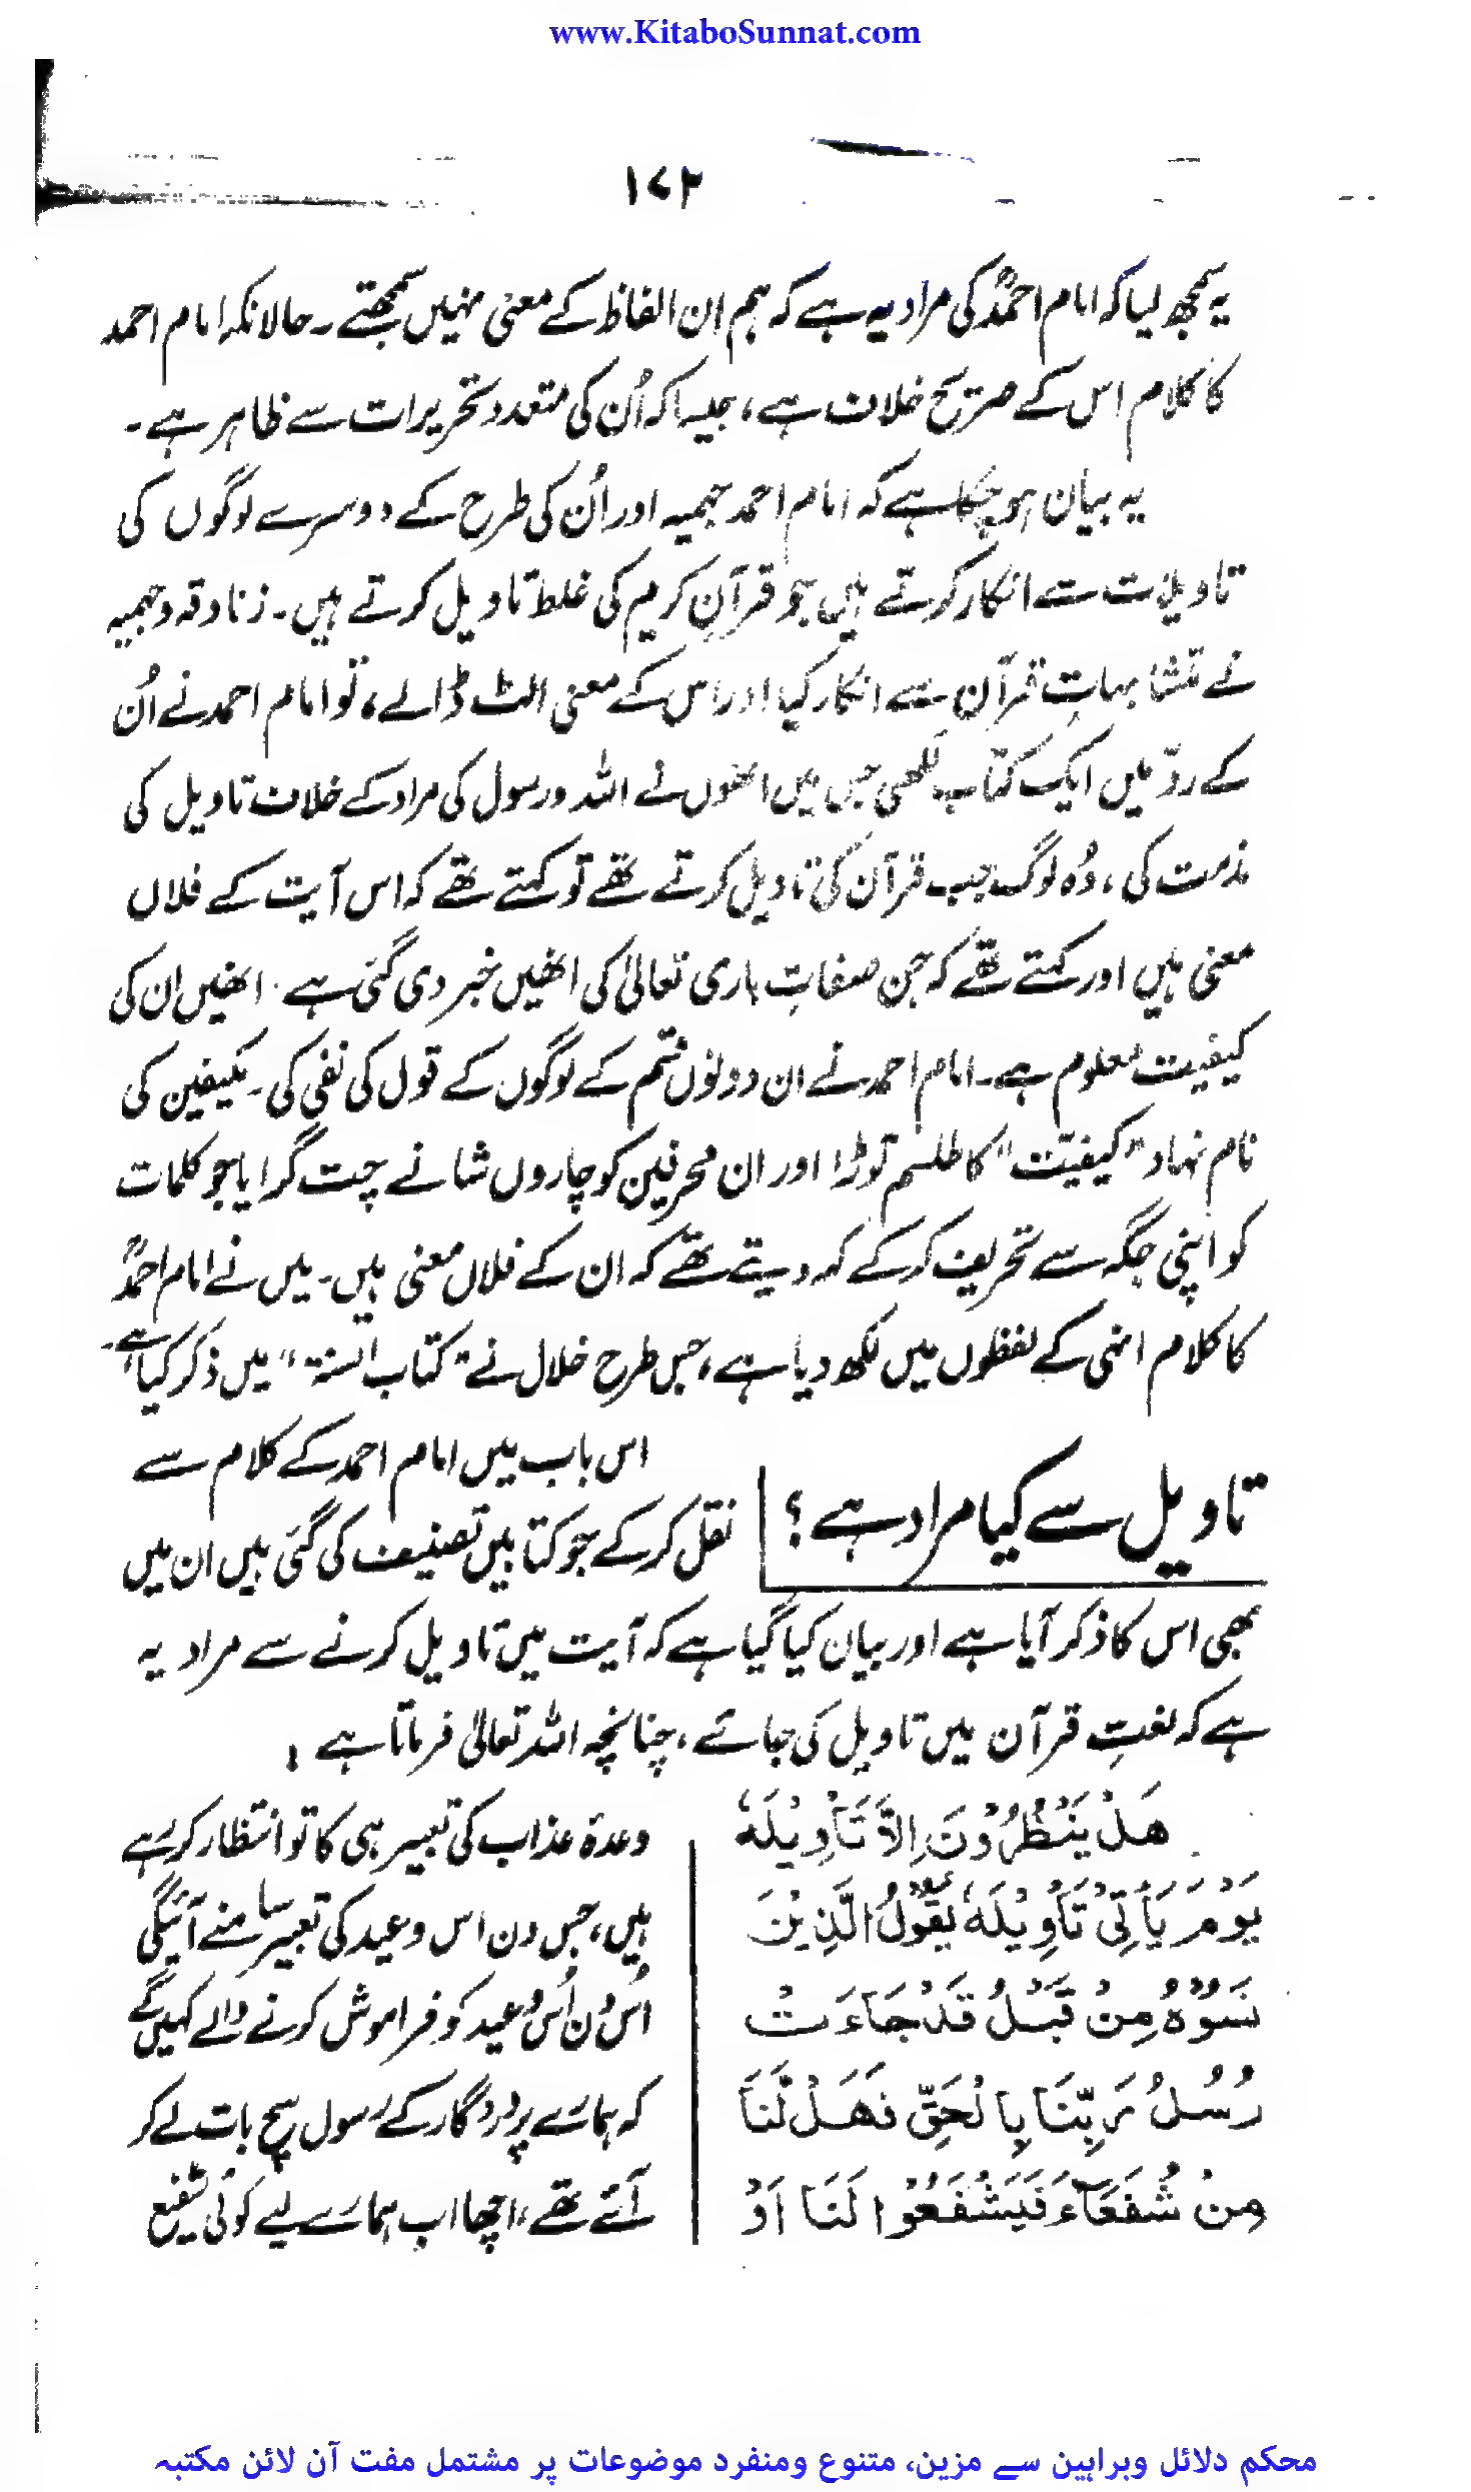 www.KitaboSunnat.com
۱۷۲
یہ سمجھ لیا کہ امام احمدؒ کی مراد یہ ہے کہ ہم ان الفاظ کے معنی نہیں سمجھتے۔ حالانکہ امام احمد
کا کلام اس کے صریح خلاف ہے، جیسا کہ اُن کی متعدد تحریرات سے ظاہر ہے۔
یہ بیان ہو چکا ہے کہ امام احمد جہمیہ اور اُن کی طرح کے دوسرے لوگوں کی
تاویلات سے انکار کرتے ہیں جو قرآنِ کریم کی غلط تاویل کرتے ہیں۔ زنادقہ و جہمیہ
نے متشابہاتِ قرآن سے انکار کیا اور اس کے معنی الٹ ڈالے، تو امام احمد نے اُن
کے ردّ میں ایک کتاب لکھی جس میں انھوں نے اللہ و رسول کی مراد کے خلاف تاویل کی
مذمت کی، وُہ لوگ جب قرآن کی تاویل کرتے تھے تو کہتے تھے کہ اس آیت کے فلاں
معنی ہیں اور کہتے تھے کہ جن صفاتِ باری تعالیٰ کی انھیں خبر دی گئی ہے۔ انھیں ان کی
کیفیت معلوم ہے۔ امام احمد نے ان دونوں قسم کے لوگوں کے قول کی نفی کی۔ مکیفین کی
نام نہاد "کیفیّت" کا طلسم توڑا اور ان محرفین کو چاروں شانے چت گرایا جو کلمات
کو اپنی جگہ سے تحریف کر کے کہہ دیتے تھے کہ ان کے فلاں معنی ہیں۔ میں نے امام احمدؒ
کا کلام انہی کے لفظوں میں لکھ دیا ہے، جس طرح خلال نے "کتاب السنۃ" میں ذکر کیا ہے۔
تاویل سے کیا مراد ہے؟
اس باب میں امام احمد کے کلام سے
نقل کر کے جو کتابیں تصنیف کی گئی ہیں ان میں
بھی اس کا ذکر آیا ہے اور بیان کیا گیا ہے کہ آیت میں تاویل کرنے سے مراد یہ
ہے کہ لغتِ قرآن میں تاویل کی جائے، چنانچہ اللہ تعالیٰ فرماتا ہے :
هَلْ يَنْظُرُوْنَ اِلَّا تَاْوِيْلَهٗ
يَوْمَ يَاْتِيْ تَاْوِيْلُهٗ يَقُوْلُ الَّذِيْنَ
نَسُوْهُ مِنْ قَبْلُ قَدْ جَاءَتْ
رُسُلُ رَبِّنَا بِالْحَقِّ فَهَلْ لَّنَا
مِنْ شُفَعَآءَ فَيَشْفَعُوْا لَنَا اَوْ
وعدۂ عذاب کی تعبیر ہی کا تو انتظار کر رہے
ہیں، جس دن اس وعید کی تعبیر سامنے آئیگی
اُس دن اُس وعید کو فراموش کرنے والے کہیں گے
کہ ہمارے پروردگار کے رسول سچ بات لے کر
آئے تھے، اچھا اب ہمارے لیے کوئی شفیع
محکم دلائل وبراہین سے مزین، متنوع ومنفرد موضوعات پر مشتمل مفت آن لائن مکتبہ